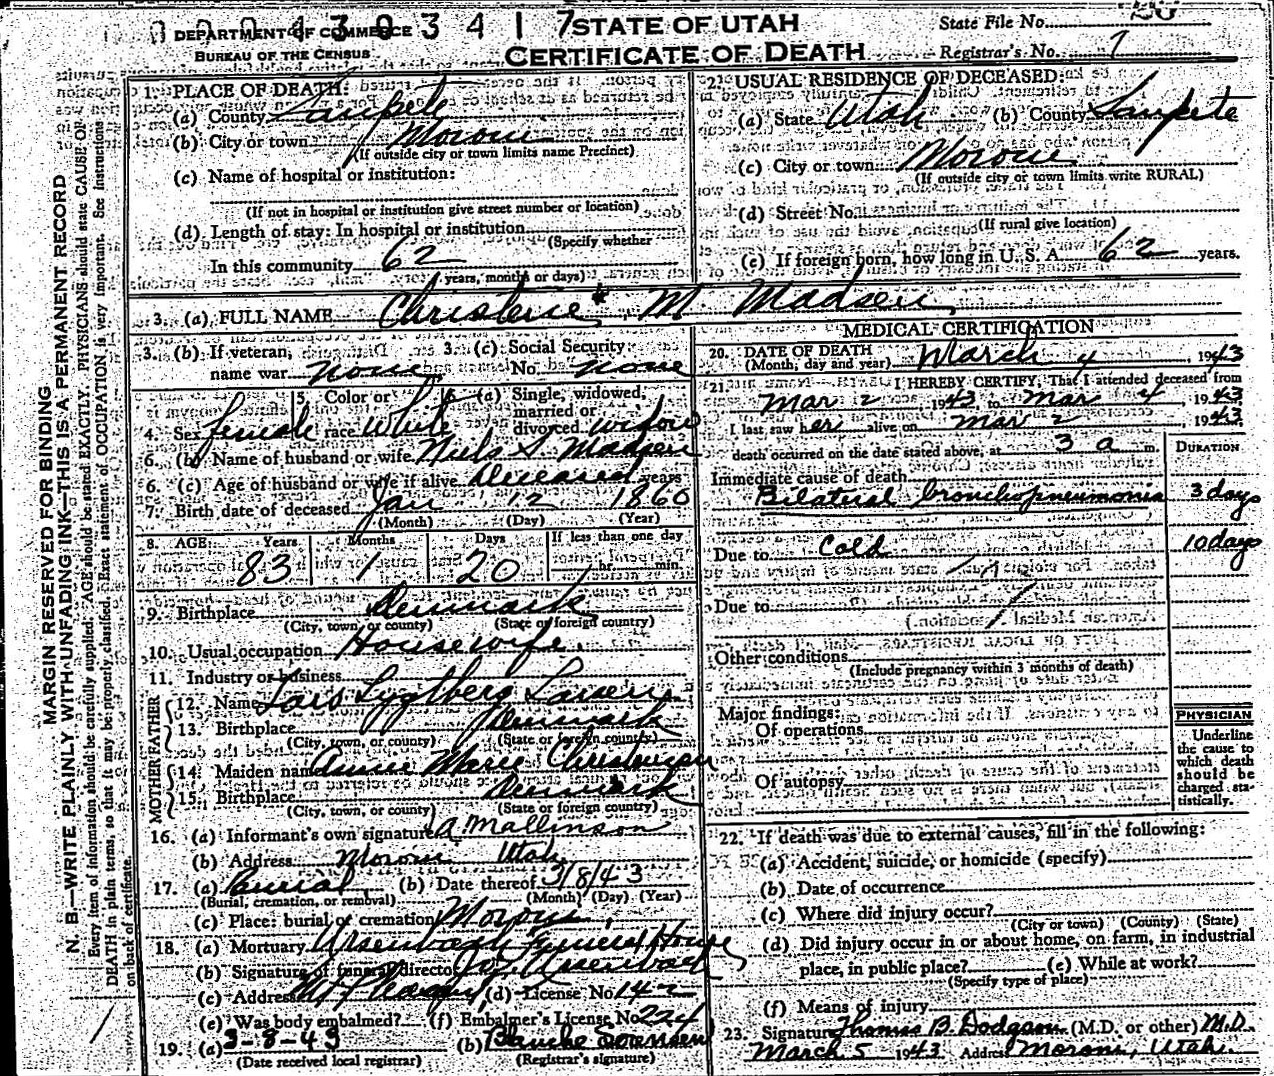 0 0 4 3 0 3 4 1 7 STATE OF UTAH
DEPARTMENT OF COMMERCE
BUREAU OF THE CENSUS
CERTIFICATE OF DEATH
State File No.
Registrar's No. 7
MARGIN RESERVED FOR BINDING
N. B.—WRITE PLAINLY WITH UNFADING INK—THIS IS A PERMANENT RECORD
Every item of information should be carefully supplied. AGE should be stated EXACTLY. PHYSICIANS should state CAUSE OF
DEATH in plain terms, so that it may be properly classified. Exact statement of OCCUPATION is very important. See instructions
on back of certificate.
1. PLACE OF DEATH:
(a) County Sanpete
(b) City or town Moroni
(If outside city or town limits name Precinct)
(c) Name of hospital or institution:
(If not in hospital or institution give street number or location)
(d) Length of stay: In hospital or institution
(Specify whether
In this community 62
years, months or days)
2. USUAL RESIDENCE OF DECEASED:
(a) State Utah (b) County Sanpete
(c) City or town Moroni
(If outside city or town limits write RURAL)
(d) Street No.
(If rural give location)
(e) If foreign born, how long in U. S. A. 62 years.
3. (a) FULL NAME Christene M. Madsen
3. (b) If veteran, 3. (c) Social Security
name war none No. none
4. Sex female 5. Color or race White 6. (a) Single, widowed, married or divorced widow
6. (b) Name of husband or wife Niels S. Madsen
6. (c) Age of husband or wife if alive Deceased years
7. Birth date of deceased Jan 12 1860
(Month) (Day) (Year)
8. AGE: Years Months Days If less than one day
83 1 20 hr. min.
9. Birthplace Denmark
(City, town, or county) (State or foreign country)
10. Usual occupation Housewife
11. Industry or business
FATHER
12. Name Lars Lygtberg Larsen
13. Birthplace Denmark
(City, town, or county) (State or foreign country)
MOTHER
14. Maiden name Annie Marie Christensen
15. Birthplace Denmark
(City, town, or county) (State or foreign country)
16. (a) Informant's own signature A. Mallinson
(b) Address Moroni Utah
17. (a) Burial (b) Date thereof 3/8/43
(Burial, cremation, or removal) (Month) (Day) (Year)
(c) Place: burial or cremation Moroni
18. (a) Mortuary Ursenbach Funeral Home
(b) Signature of funeral director Ursenbach
(c) Address Mt Pleasant (d) License No. 142
(e) Was body embalmed? (f) Embalmer's License No. 224
19. (a) 3-8-43 (b) Blanche Sorensen
(Date received local registrar) (Registrar's signature)
MEDICAL CERTIFICATION
20. DATE OF DEATH
(Month, day and year) March 4, 1943
21. I HEREBY CERTIFY, That I attended deceased from
Mar 2 1943 to Mar 4, 1943
I last saw her alive on Mar 2 1943
death occurred on the date stated above, at 3 a m.
DURATION
Immediate cause of death
Bilateral bronchopneumonia 3 days
Due to Cold 10 days
Due to
Other conditions
(Include pregnancy within 3 months of death)
Major findings:
Of operations
Of autopsy
PHYSICIAN
Underline
the cause to
which death
should be
charged sta-
tistically.
22. If death was due to external causes, fill in the following:
(a) Accident, suicide, or homicide (specify)
(b) Date of occurrence
(c) Where did injury occur?
(City or town) (County) (State)
(d) Did injury occur in or about home, on farm, in industrial
place, in public place? (e) While at work?
(Specify type of place)
(f) Means of injury
23. Signature Thomas B. Dodgson (M.D. or other) M.D.
March 5 1943 Address Moroni, Utah.